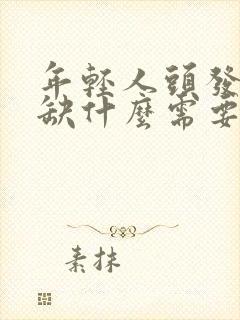 年輕人頭發
缺什麼需要
素抹